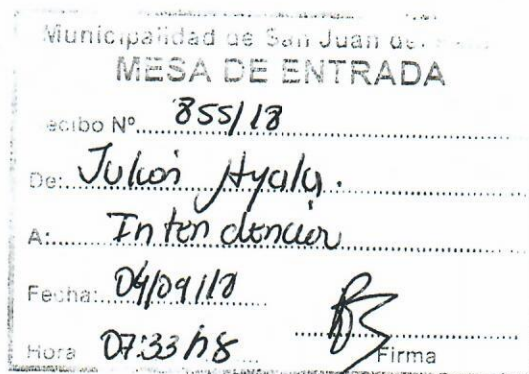 Municipalidad de San Juan del
MESA DE ENTRADA
ecibo Nº 855/18
De: Julion Ayala.
A: Intendencia
Fecha: 04/09/18
Hora 07:33 hs
Firma